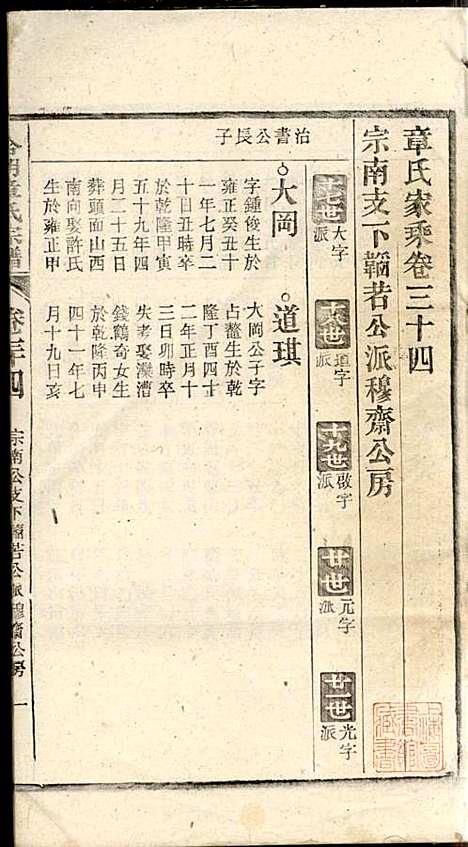 章氏家乘卷三十四
宗南支下籋若公派穆齋公房
十七世大字派
十八世道字派
十九世啟字派
廿世元字派
廿一世光字派
治書公長子
大岡
字鍾俊生於
雍正癸丑十
一年七月二
十日丑時卒
於乾隆甲寅
五十九年四
月二十五日
葬頭面山西
南向娶許氏
生於雍正甲
道琪
大岡公子字
占鼇生於乾
隆丁酉四十
二年正月十
三日卯時卒
失考娶灤漕
錢鶴奇女生
於乾隆丙申
四十一年七
月十九日亥
章氏宗譜
卷三十四
宗南公支下籋若公派穆齋公房
一